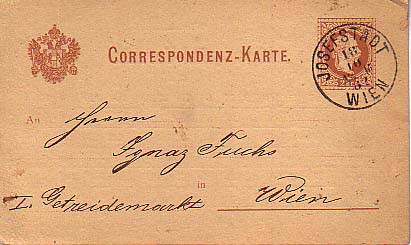 CORRESPONDENZ-KARTE.
JOSEFSTADT
WIEN
An Herrn
Ignaz Fuchs
in Wien
I. Getreidemarkt